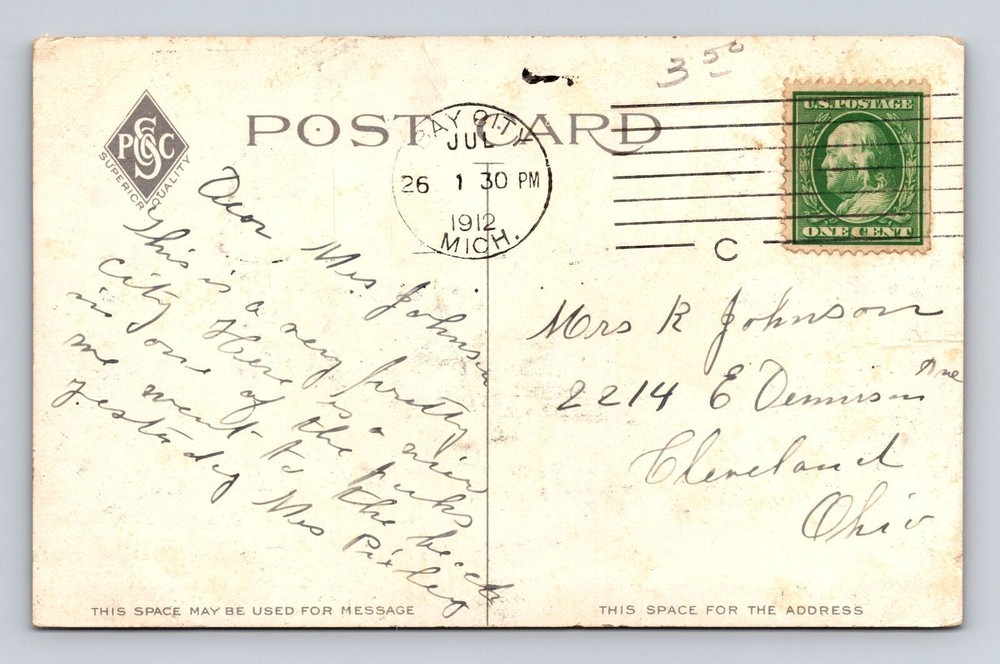 3 50
POST CARD
PCSCO
SUPERIOR QUALITY
BAY CITY
JUL
26 1 30 PM
1912
MICH.
C
U.S. POSTAGE
ONE CENT
Dear Mrs. Johnson
This is a very pretty
city. Here is a view
in one of the parks
we went to the beach
yesterday Mrs Pixley
Mrs R Johnson
2214 E Dennison Ave
Cleveland
Ohio
THIS SPACE MAY BE USED FOR MESSAGE
THIS SPACE FOR THE ADDRESS